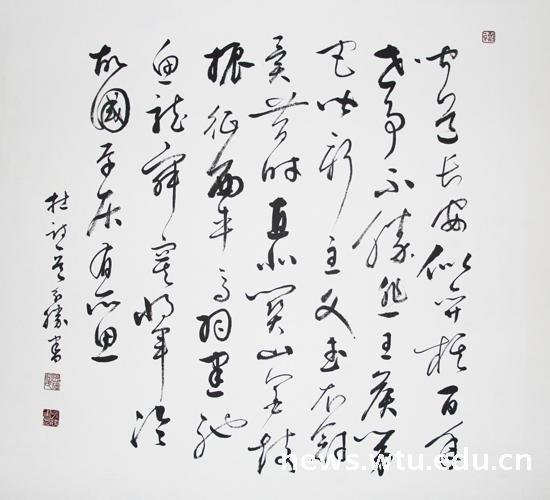 闻道长安似弈棋百年
世事不勝悲王侯第
宅皆新主文武衣冠
異昔时直北关山金鼓
振征西车马羽書馳
魚龍寂寞秋江冷
故國平居有所思
杜詩 勝書
news.wtu.edu.cn